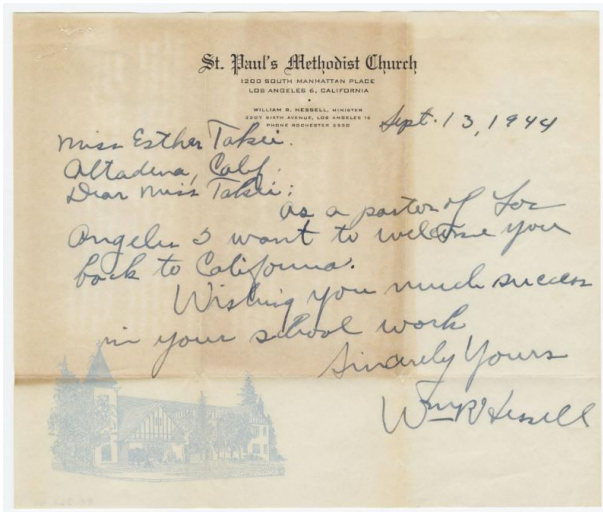 St. Paul's Methodist Church
1200 SOUTH MANHATTAN PLACE
LOS ANGELES 6, CALIFORNIA
WILLIAM R. HESSELL, MINISTER
2207 SIXTH AVENUE, LOS ANGELES 16
PHONE ROCHESTER 2530
Sept. 13, 1944
Miss Esther Takei.
Altadena, Calif.
Dear Miss Takei:
As a pastor of Los
Angeles I want to welcome you
back to California.
Wishing you much success
in your school work
Sincerely Yours
Wm R Hessell